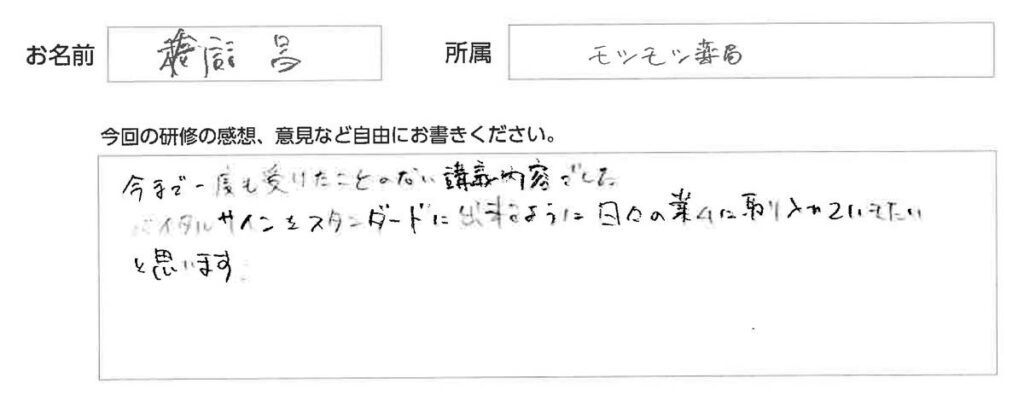 お名前 昌 所属 モツモツ薬局
今回の研修の感想、意見など自由にお書きください。
今まで一度も受けたことのない講義内容でした
バイタルサインをスタンダードに出来るように日々の業ムに取り入れていきたい
と思います